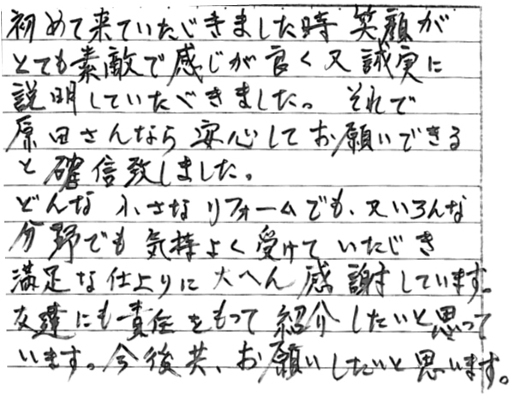 初めて来ていただきました時 笑顔が
とても素敵で感じが良く又誠実に
説明していただきました。 それで
原田さんなら安心してお願いできる
と確信致しました。
どんな小さなリフォームでも、又いろんな
分野でも気持よく受けていただき
満足な仕上りに大へん感謝しています。
友達にも責任をもって紹介したいと思って
います。今後共、お願いしたいと思います。